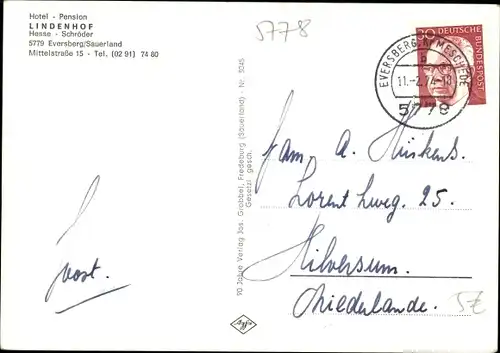 Hotel - Pension
LINDENHOF
Hesse - Schröder
5779 Eversberg/Sauerland
Mittelstraße 15 - Tel. (02 91) 74 80
5778
30 DEUTSCHE BUNDESPOST
EVERSBERG MESCHEDE
b
11.-2.74-18
5778
Fam. A. Hüskens.
Lorentzweg. 25.
Hilversum.
Niederlande.
5€
Joost.
90 Jahre Verlag Jos. Grobbel, Fredeburg (Sauerland) - Nr. 5045
Gesetzl. gesch.